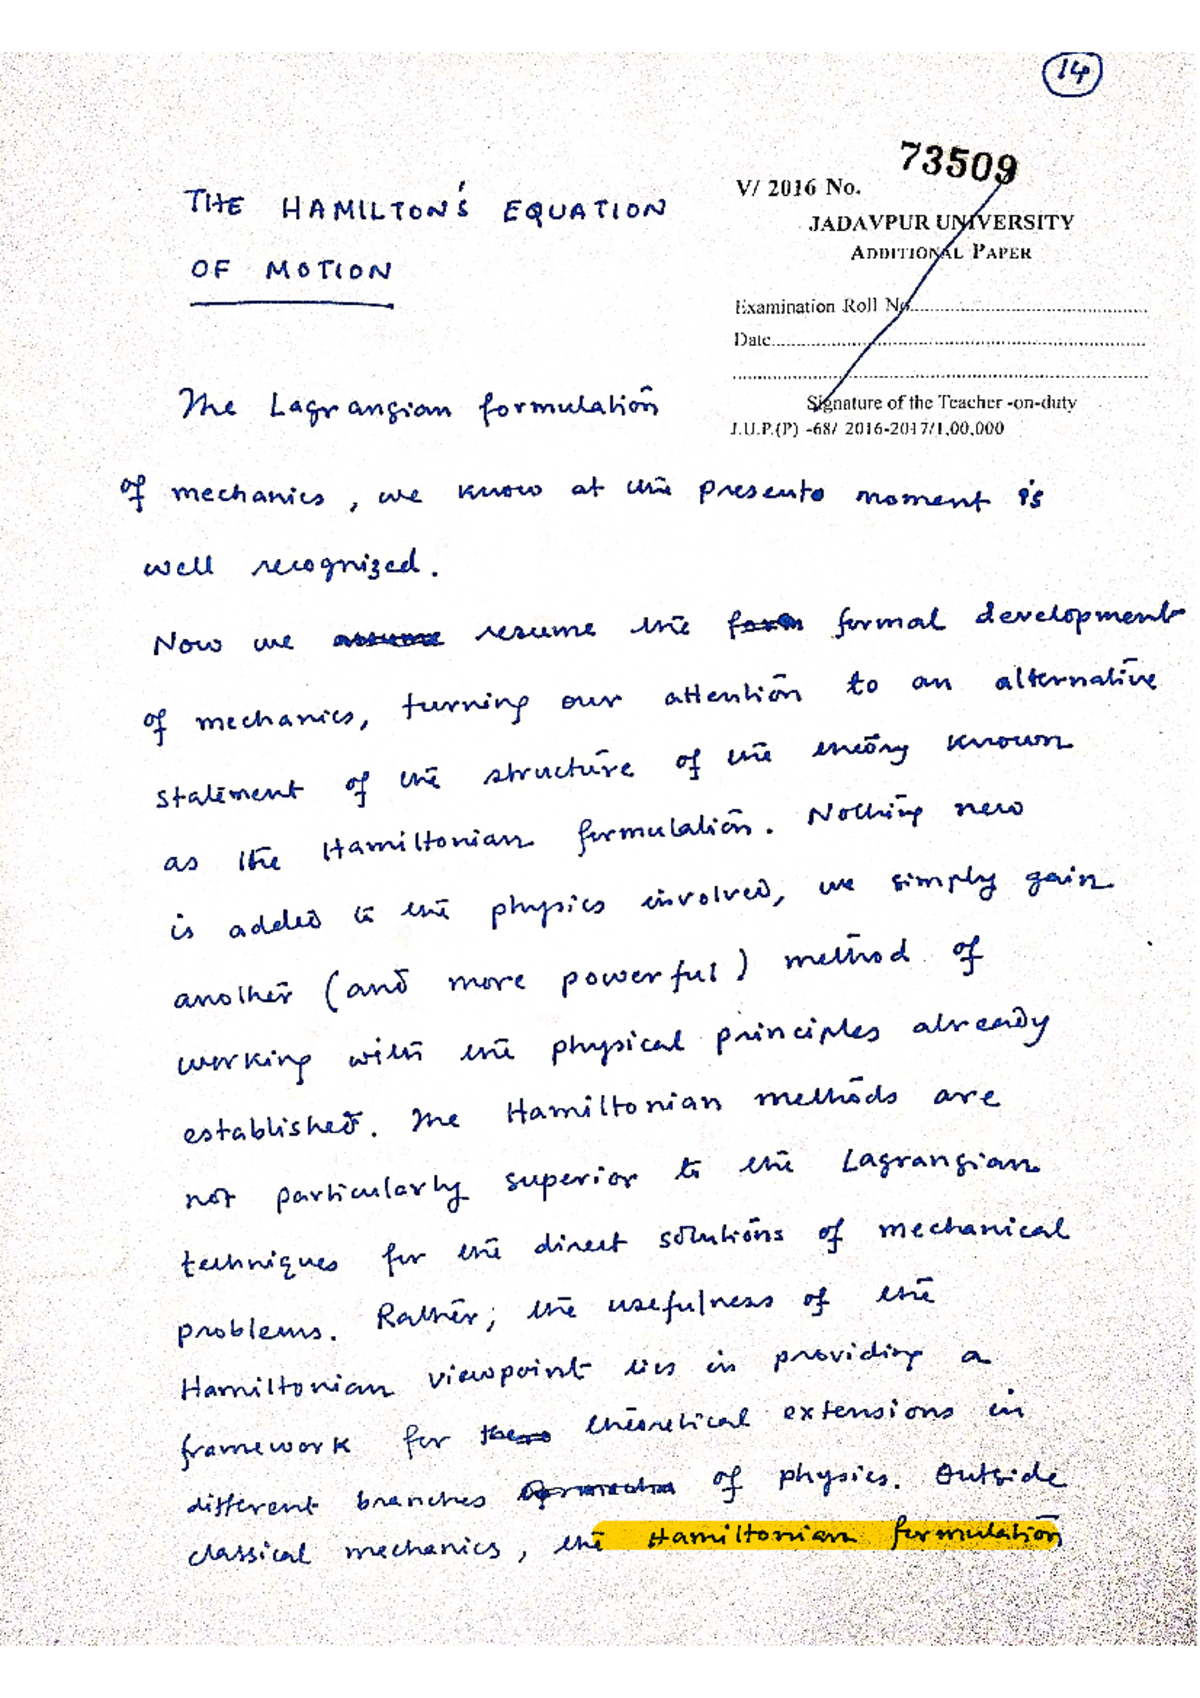 14
73509
V/ 2016 No.
JADAVPUR UNIVERSITY
ADDITIONAL PAPER
Examination Roll No.
Date
Signature of the Teacher -on-duty
J.U.P.(P) -68/ 2016-2017/1,00,000
THE HAMILTON'S EQUATION
OF MOTION
The Lagrangian formulation
of mechanics, we know at the present moment is
well recognized.
Now we assume resume the form formal development
of mechanics, turning our attention to an alternative
statement of the structure of the theory known
as the Hamiltonian formulation. Nothing new
is added to the physics involved, we simply gain
another (and more powerful) method of
working with the physical principles already
established. The Hamiltonian methods are
not particularly superior to the Lagrangian
techniques for the direct solutions of mechanical
problems. Rather, the usefulness of the
Hamiltonian viewpoint lies in providing a
framework for theoretical extensions in
different branches of physics. Outside
classical mechanics, the Hamiltonian formulation